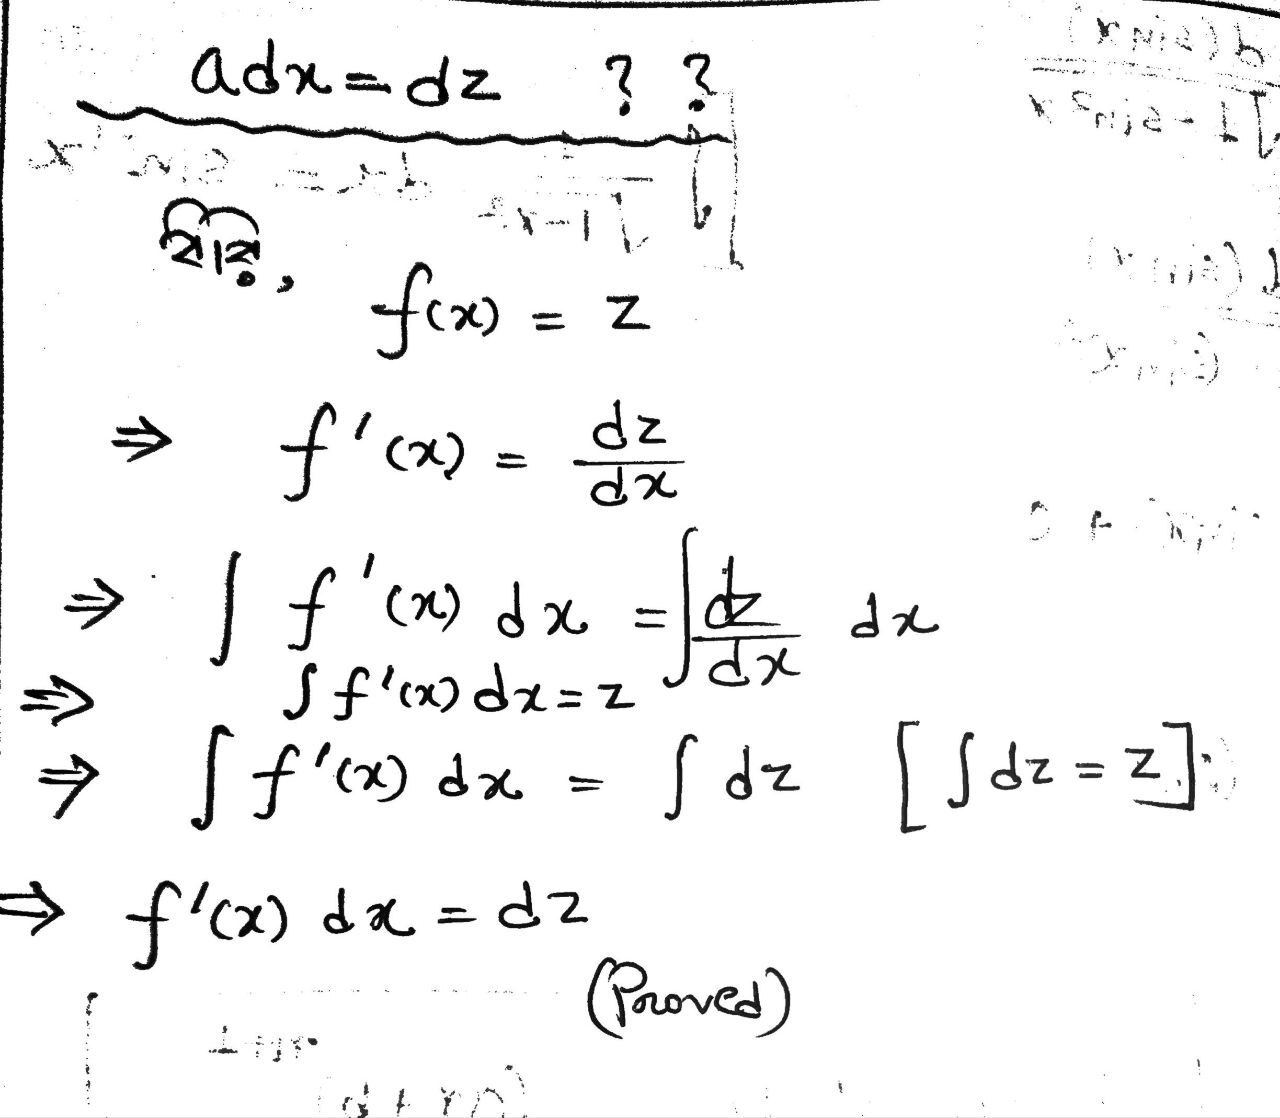 adx = dz ? ?
f(x) = z
⇒ f'(x) = dz/dx
⇒ ∫ f'(x) dx = ∫ dz/dx dx
⇒ ∫ f'(x) dx = z
⇒ ∫ f'(x) dx = ∫ dz [∫ dz = z]
⇒ f'(x) dx = dz
(Proved)